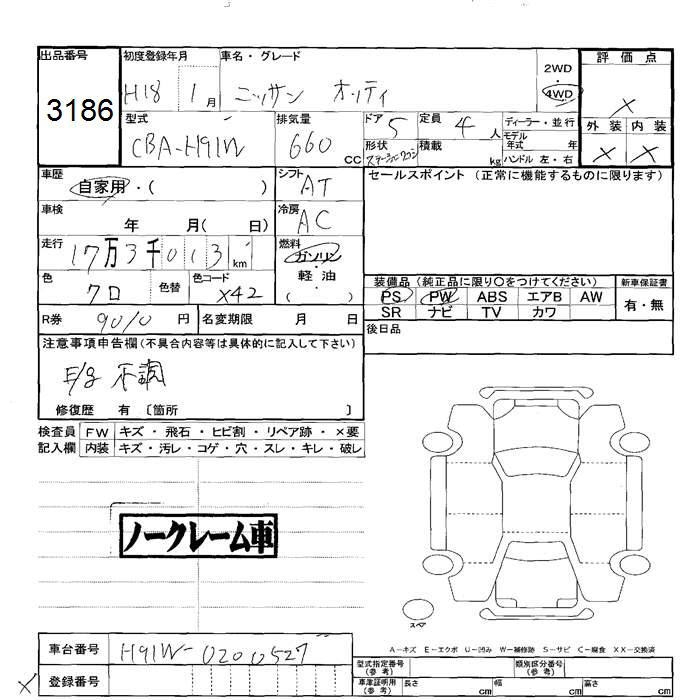 出品番号 初度登録年月 車名・グレード 評価点
3186 H18 1月 ニッサン オッティ 2WD 4WD ×
型式 排気量 ドア 定員 ディーラー・並行 外装 内装
CBA-H91W 660cc 5 4人 モデル年式 年 × ×
形状 積載 kg ハンドル 左・右
ステーションワゴン
車歴 シフト セールスポイント (正常に機能するものに限ります)
自家用・( ) AT
車検 冷房
年 月( 日) AC
走行 燃料
17万3千013km ガソリン・軽油( )
色 色替 色コード 装備品 (純正品に限り○をつけてください) 新車保証書
クロ X42 PS PW ABS エアB AW 有・無
SR ナビ TV カワ
R券 9010円 名変期限 月 日 後日品
注意事項申告欄(不具合内容等は具体的に記入して下さい)
E/g 不調
修復歴 有 〔箇所 〕
検査員 FW キズ・飛石・ヒビ割・リペア跡・×要
記入欄 内装 キズ・汚レ・コゲ・穴・スレ・キレ・破レ
ノークレーム車
スペア
A－キズ E－エクボ U－凹み W－補修跡 S－サビ C－腐食 XX－交換済
車台番号 H91W-0200527
型式指定番号(参考) 類別区分番号(参考)
× 登録番号 車庫証明用(参考) 長さ cm 幅 cm 高さ cm